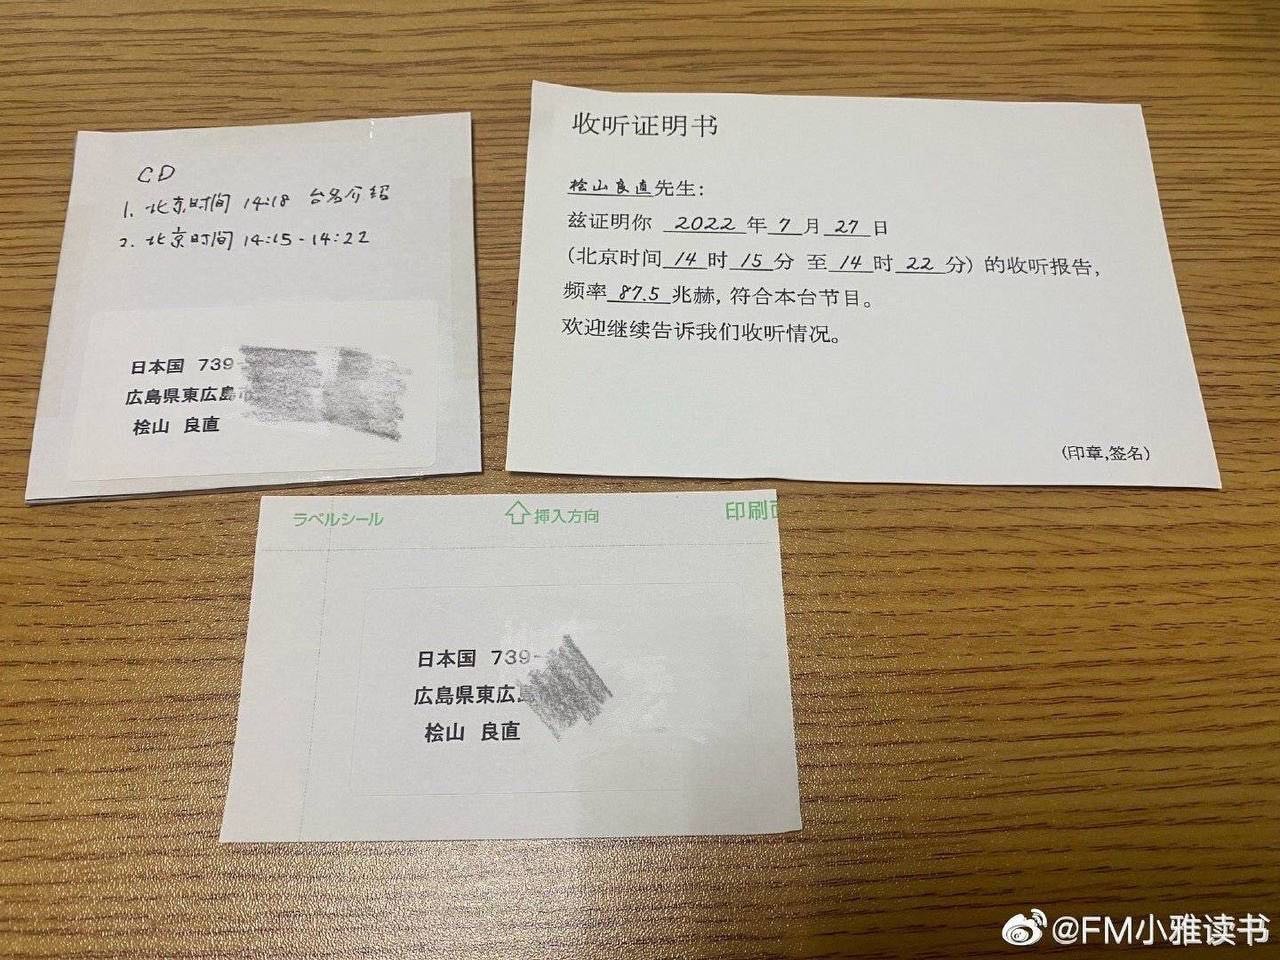 CD
1. 北京时间 14:18 台名介绍
2. 北京时间 14:15-14:22
日本国 739-
広島県東広島市
桧山 良直
收听证明书
桧山良直先生:
兹证明你 2022 年 7 月 27 日
(北京时间 14 时 15 分 至 14 时 22 分) 的收听报告,
频率 87.5 兆赫, 符合本台节目。
欢迎继续告诉我们收听情况。
(印章,签名)
ラベルシール 挿入方向 印刷面
日本国 739-
広島県東広島
桧山 良直
@FM小雅读书